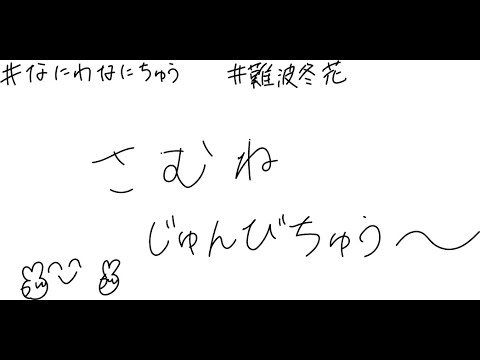 #なにわなにちゅう #難波冬花
さむね
じゅんびちゅう〜